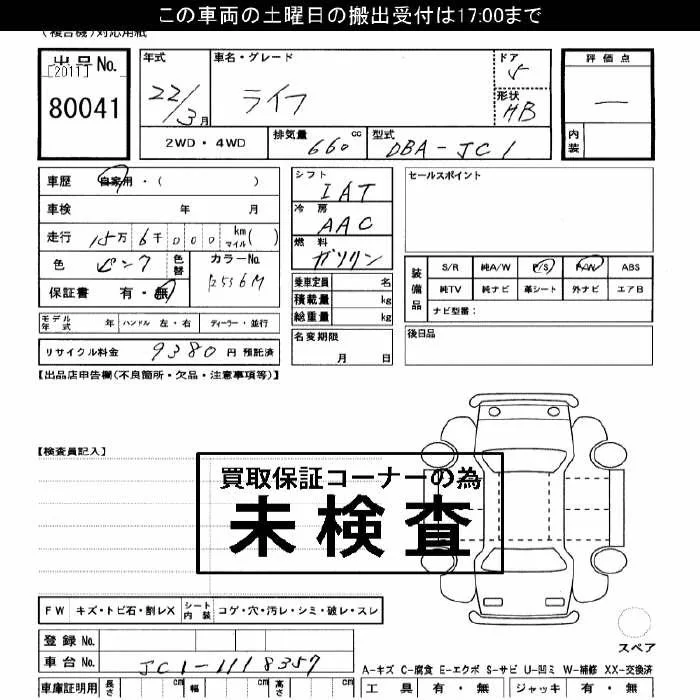 この車両の土曜日の搬出受付は17:00まで
(複合機)対応用紙
出品No.
[2011]
80041
年式
22/3月
車名・グレード
ライフ
ドア
5
形状
HB
評価点
―
内装
2WD・4WD
排気量 660 cc
型式 DBA-JC1
車歴 自家用・( )
車検 年 月
走行 15万 6千 000 km マイル( )
色 ピンク 色替
カラーNo.
R556M
保証書 有・無
モデル年式 年 ハンドル 左・右 ディーラー・並行
リサイクル料金 9380 円 預託済
シフト
IAT
冷房
AAC
燃料
ガソリン
乗車定員 名
積載量 kg
総重量 kg
名変期限
月 日
セールスポイント
装備品
S/R 純A/W P/S P/W ABS
純TV 純ナビ 革シート 外ナビ エアB
ナビ型番:
後日品
【出品店申告欄(不良箇所・欠品・注意事項等)】
【検査員記入】
買取保証コーナーの為
未検査
FW キズ・トビ石・割レX シート内装 コゲ・穴・汚レ・シミ・破レ・スレ
登録No.
車台No. JC1-1118357
スペア
A-キズ C-腐食 E-エクボ S-サビ U-凹ミ W-補修 XX-交換済
車庫証明用 長さ cm 幅 cm 高さ cm
工具 有・無 ジャッキ 有・無